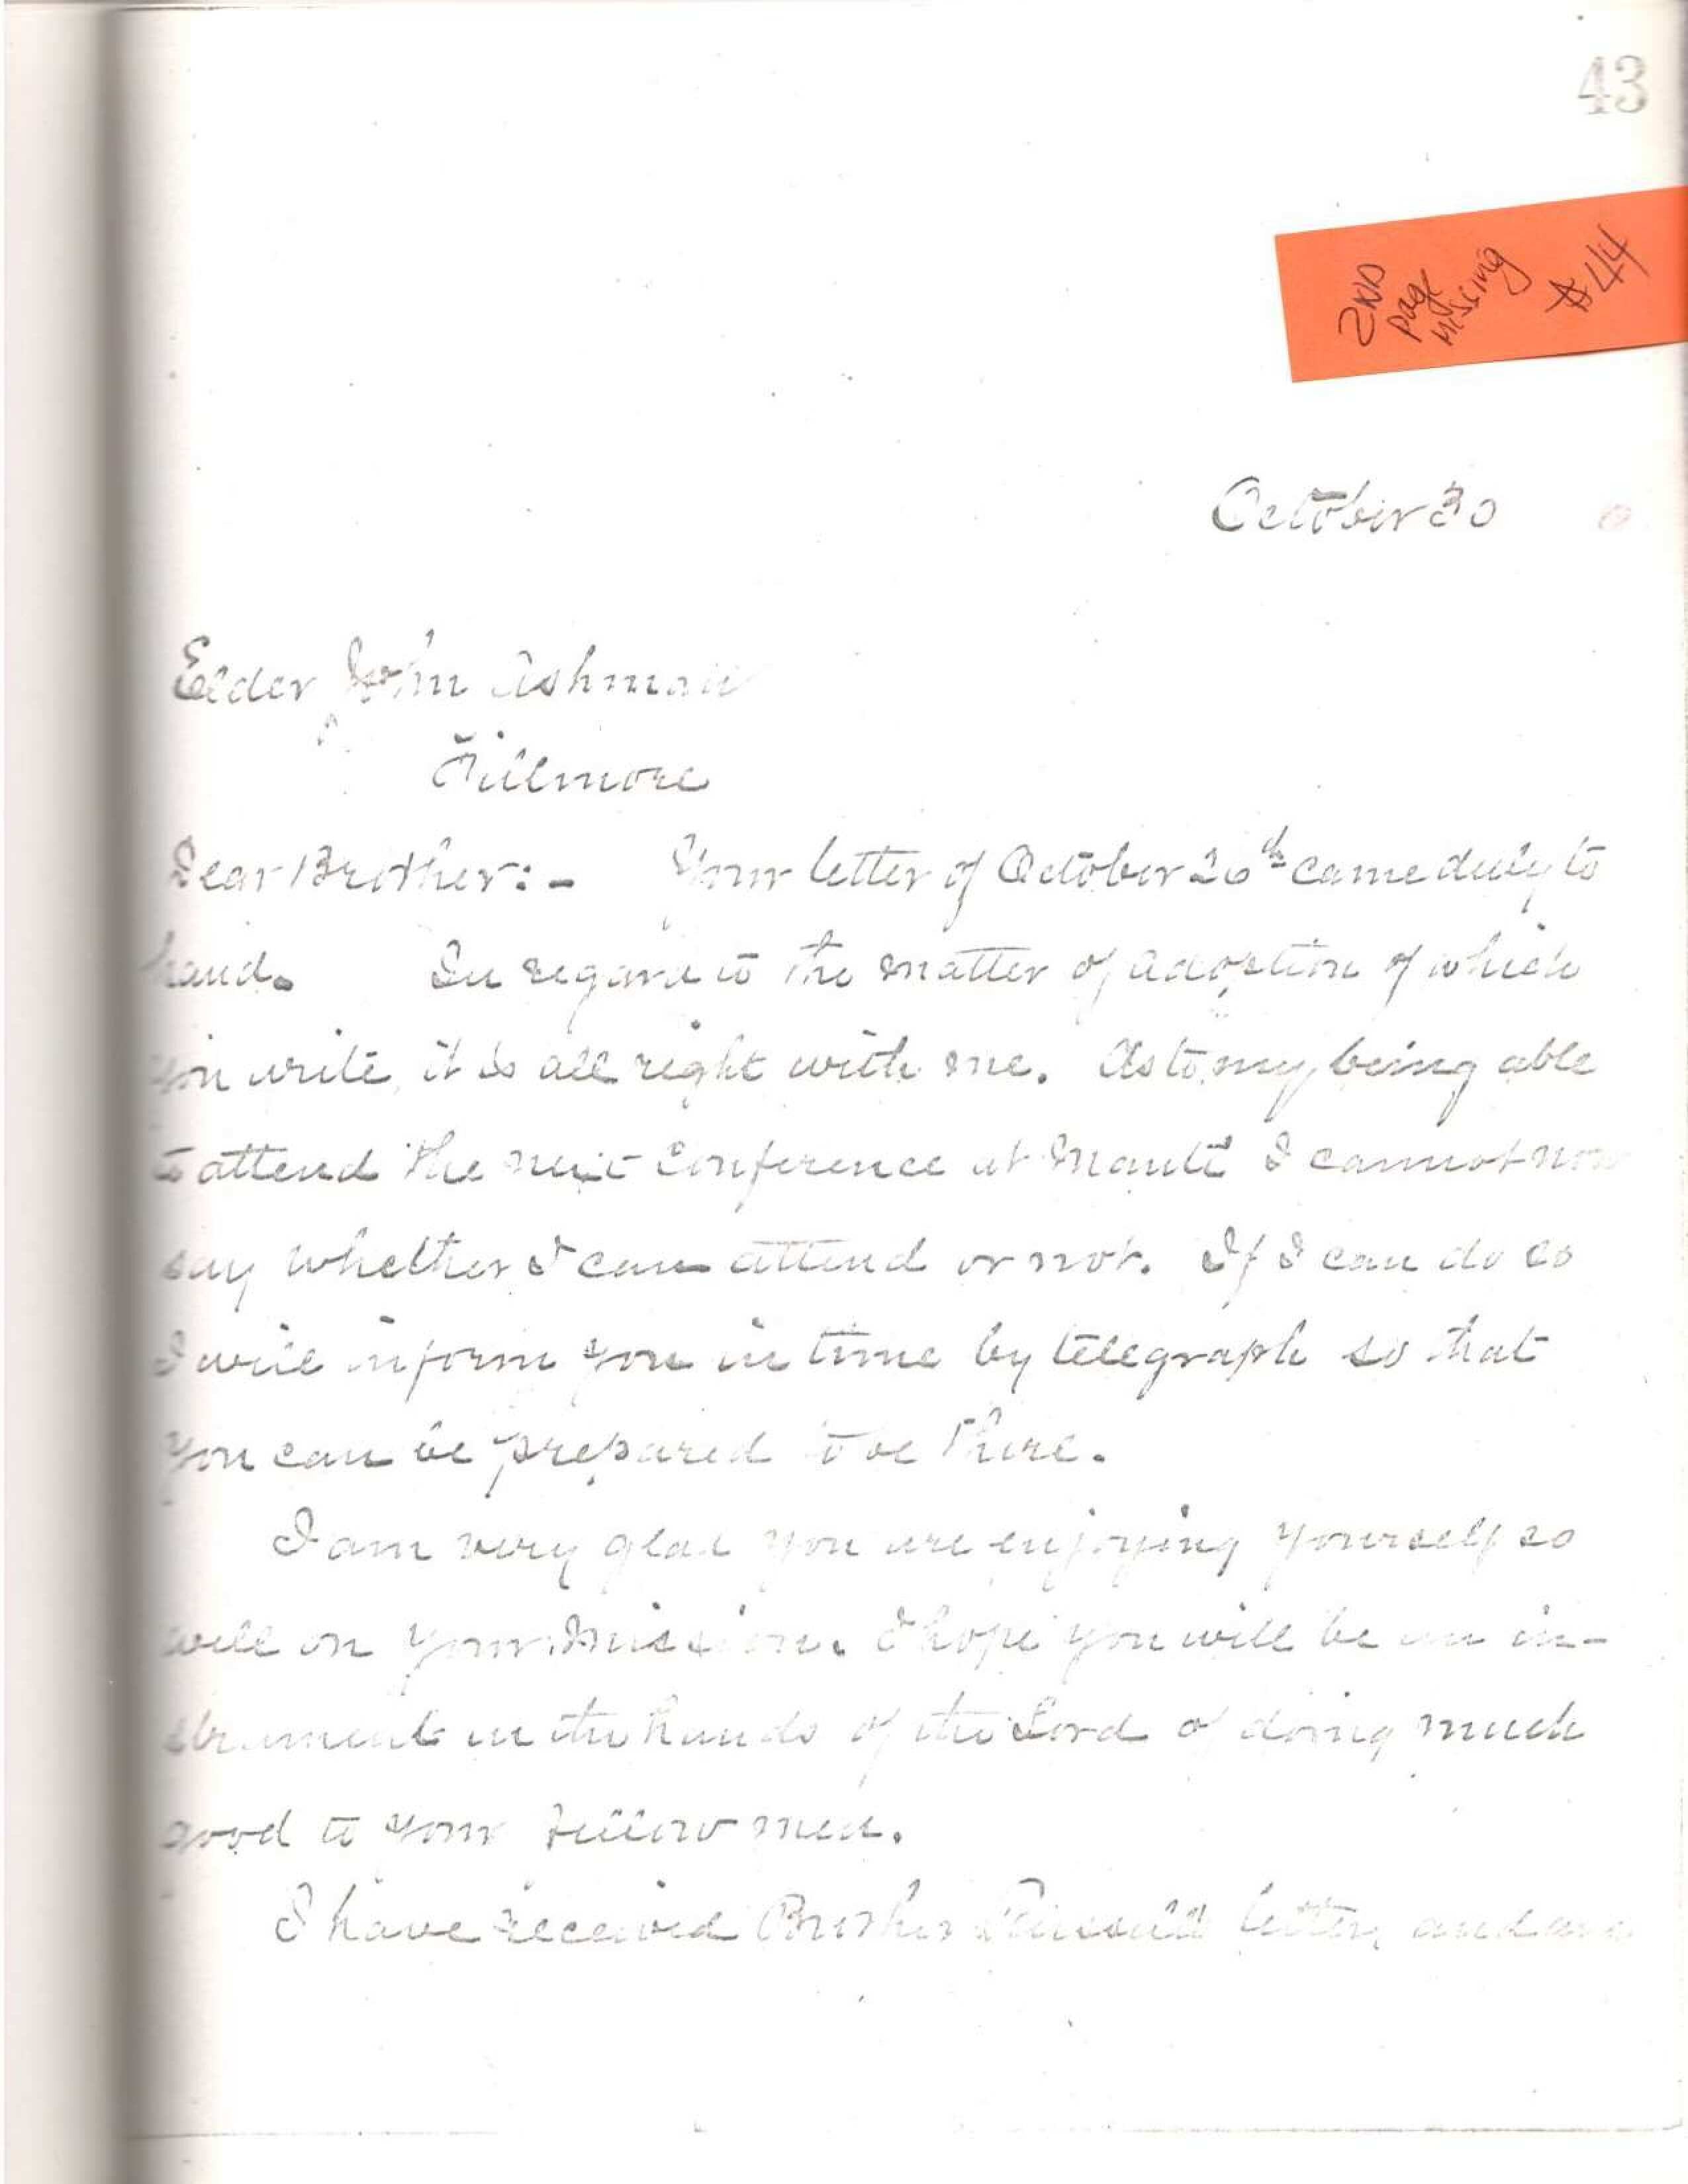 43
2ND
page
missing
#44
October 30
Elder John Ashman
Fillmore
Dear Brother:- Your letter of October 26th came duly to
hand. In regard to the matter of adoption of which
you write, it is all right with me. As to my being able
to attend the next Conference at Manti I cannot now
say whether I can attend or not. If I can do so
I will inform you in time by telegraph so that
you can be prepared to be there.
I am very glad you are enjoying yourself so
well on your mission. I hope you will be an in-
strument in the hands of the Lord of doing much
good to your fellow men.
I have received Brother letter, and am